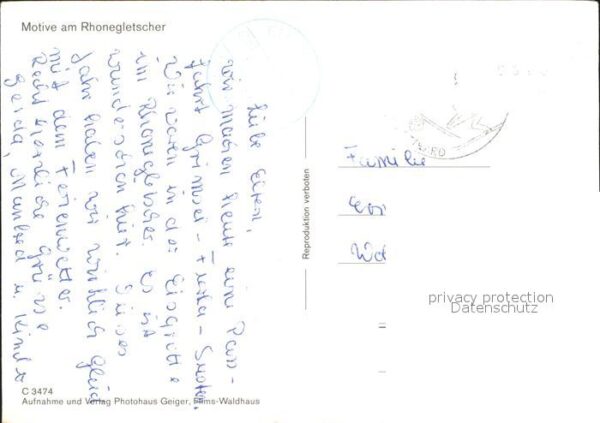 Motive am Rhonegletscher
Liebe Eltern,
wir machen heute eine Pass-
fahrt Grimsel - Furka - Susten.
Wir waren in der Eisgrotte
im Rhonegletscher. Es ist
wunderschön hier. Dieses
Jahr haben wir wirklich Glück
mit dem Ferienwetter.
Recht herzliche Grüsse
Gerda, Manfred u. Kinder
Reproduktion verboten
Familie
privacy protection
Datenschutz
C 3474
Aufnahme und Verlag Photohaus Geiger, Flims-Waldhaus